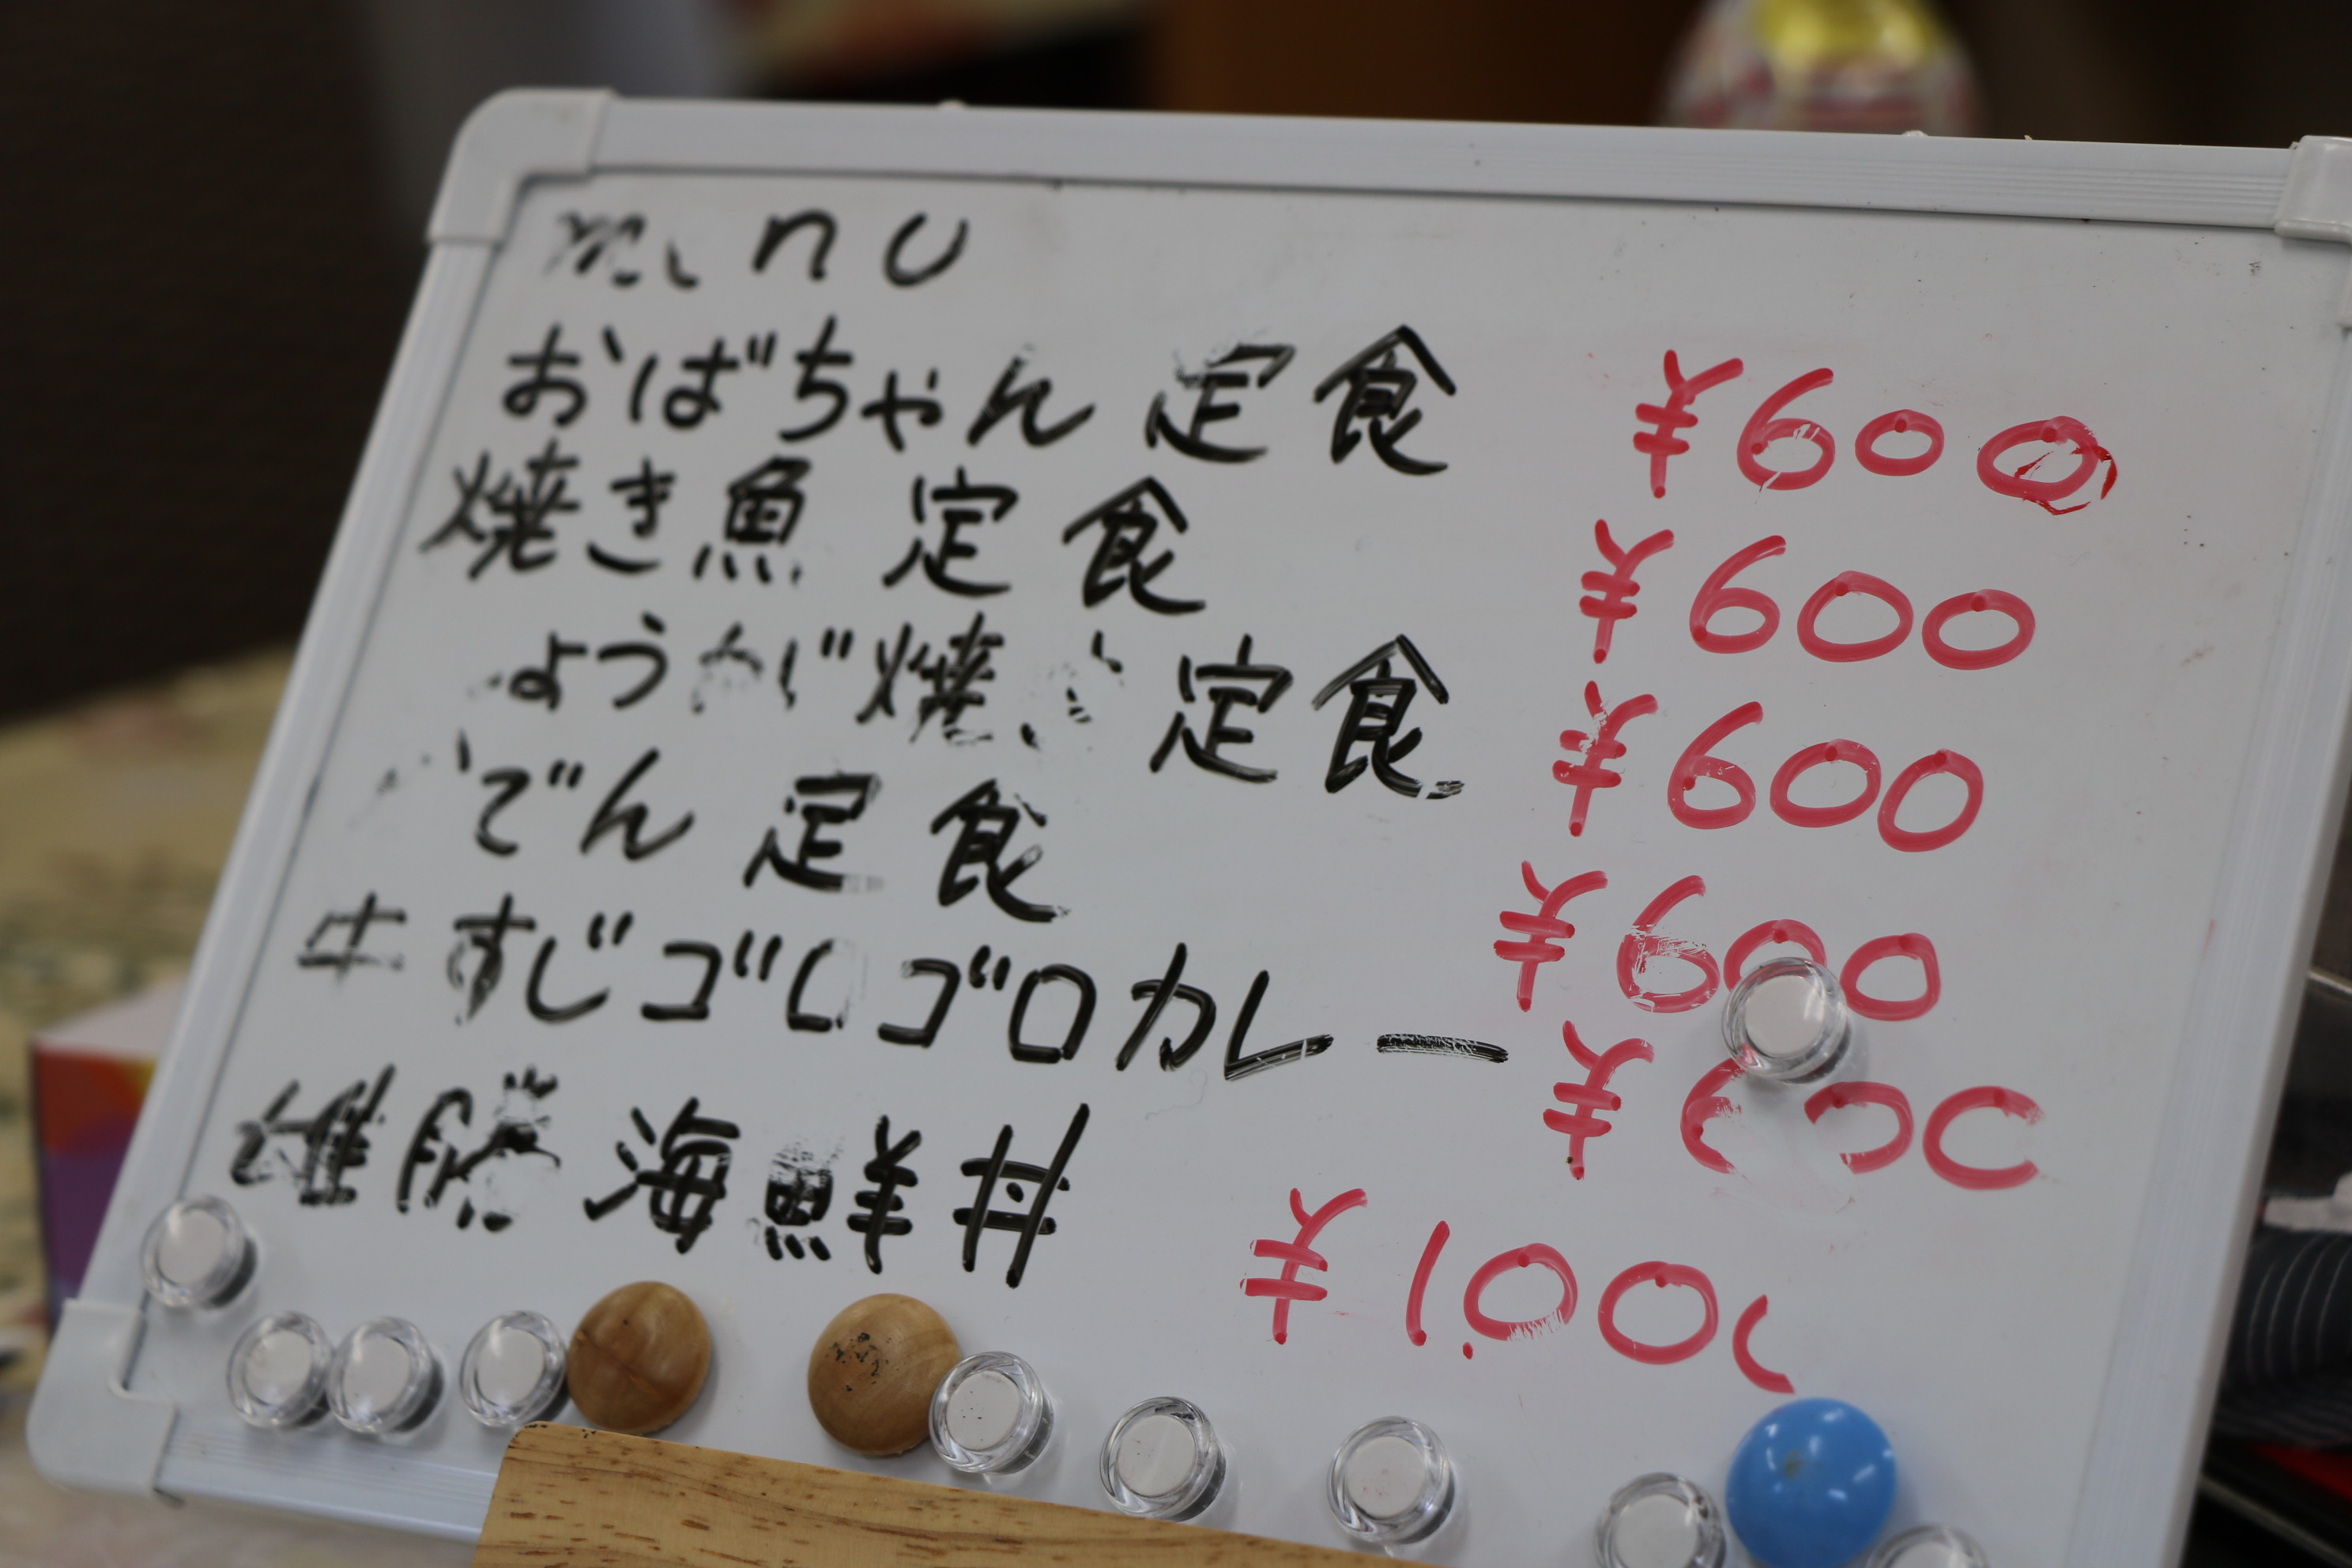 menu
おばちゃん定食 ¥600
焼き魚定食 ¥600
ょうが焼き定食 ¥600
でん定食 ¥600
牛すじゴロゴロカレー ¥600
雄勝海鮮丼 ¥1,000